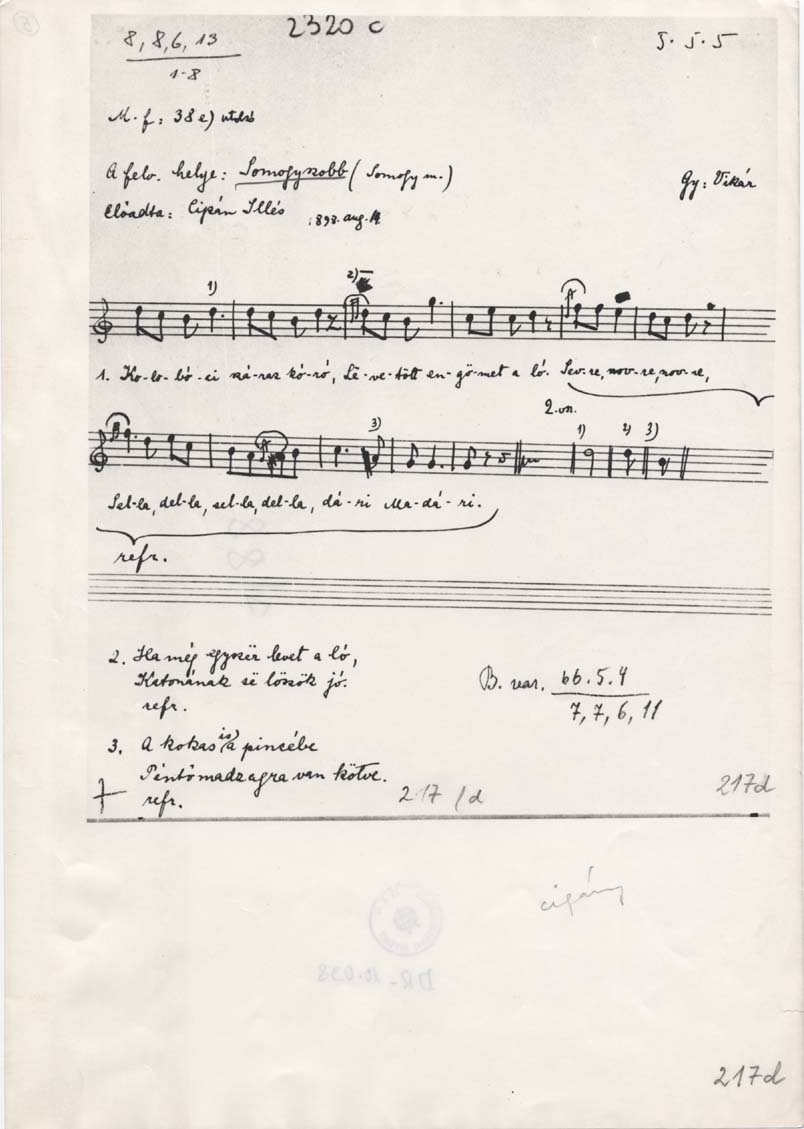 2320 c
8, 8, 6, 13
1-8
5. 5. 5
M. f: 38e) utolsó
A felv. helye: Somogyszobb (Somogy m.)
Gy: Vikár
Előadta: Cipán Illés 1898. aug.
1) 2)
1. Ko-lo-bó-ci szá-raz kó-ró, Lë-ve-tött en-gö-met a ló. Sev-re, nov-re, nov-re,
2. vn.
3) 1) 2) 3)
Sel-la, del-la, sel-la, del-la, dá-ri Ma-dá-ri.
refr.
2. Ha még egyszër levet a ló,
Katonának së löszök jó.
refr.
B. var. bb. 5. 4
7, 7, 6, 11
3. A kokas is a pincébe
Péntőmadzagra van kötve.
refr.
217/d
217d
cigány
217d